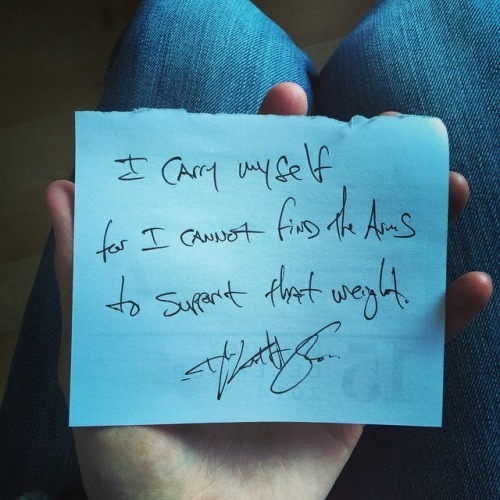 I CARRY mySelf
for I CANNOT find the Arms
to support that weight.